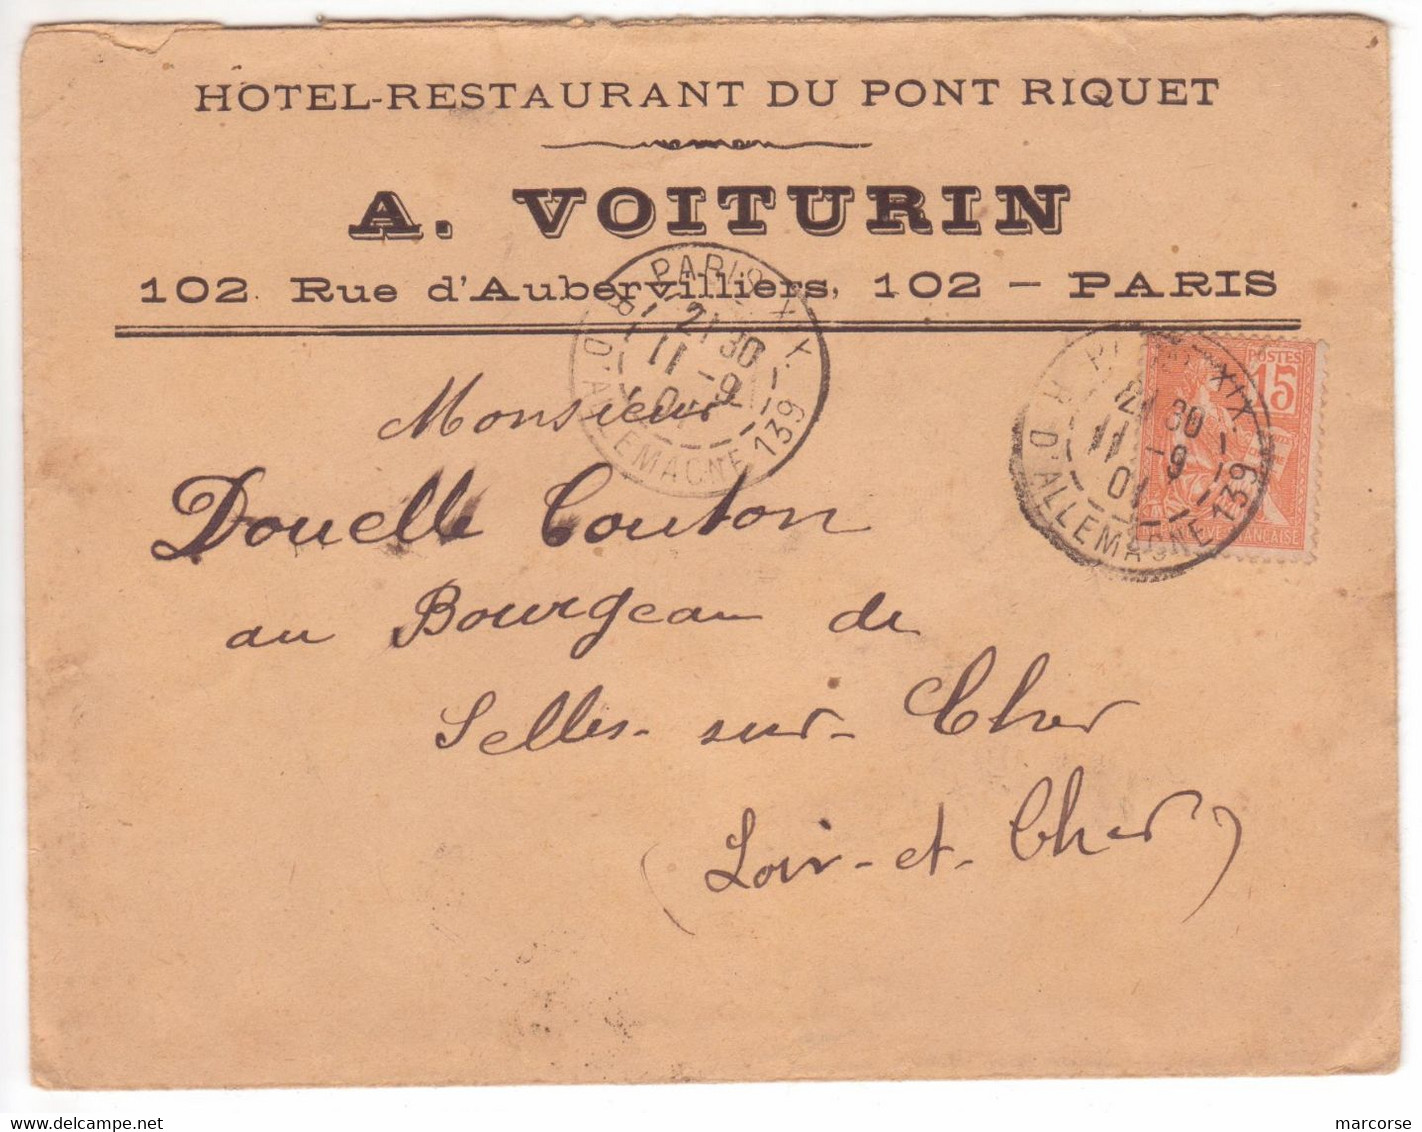 HOTEL-RESTAURANT DU PONT RIQUET
A. VOITURIN
102 Rue d'Aubervilliers, 102 — PARIS
PARIS XIX
21 30
11 -9
01
R. D'ALLEMAGNE 139
POSTES
15
PARIS XIX
21 30
11 -9
01
R. D'ALLEMAGNE 139
Monsieur
Douelle Couton
au Bourgeau de
Selles-sur-Cher
(Loir-et-Cher)
www.delcampe.net
marcorse